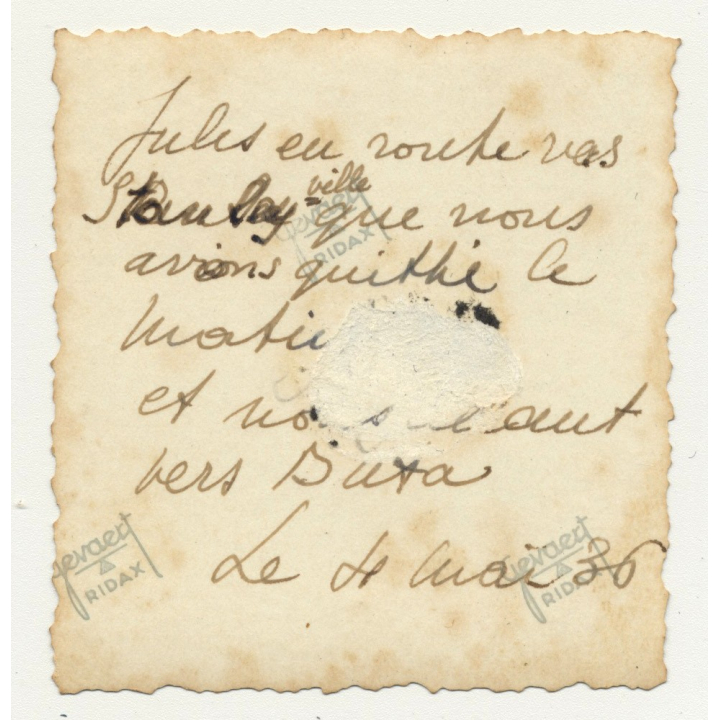 Jules en route vers
Stanleyville que nous
avions quitté le
matin
et nous allant
vers Buta
Le 4 mai 36
Gevaert
RIDAX
Gevaert
RIDAX
Gevaert
RIDAX